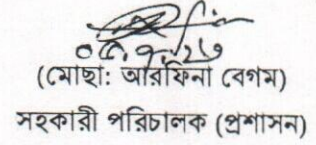 (মোছা: আরফিনা বেগম)
সহকারী পরিচালক (প্রশাসন)